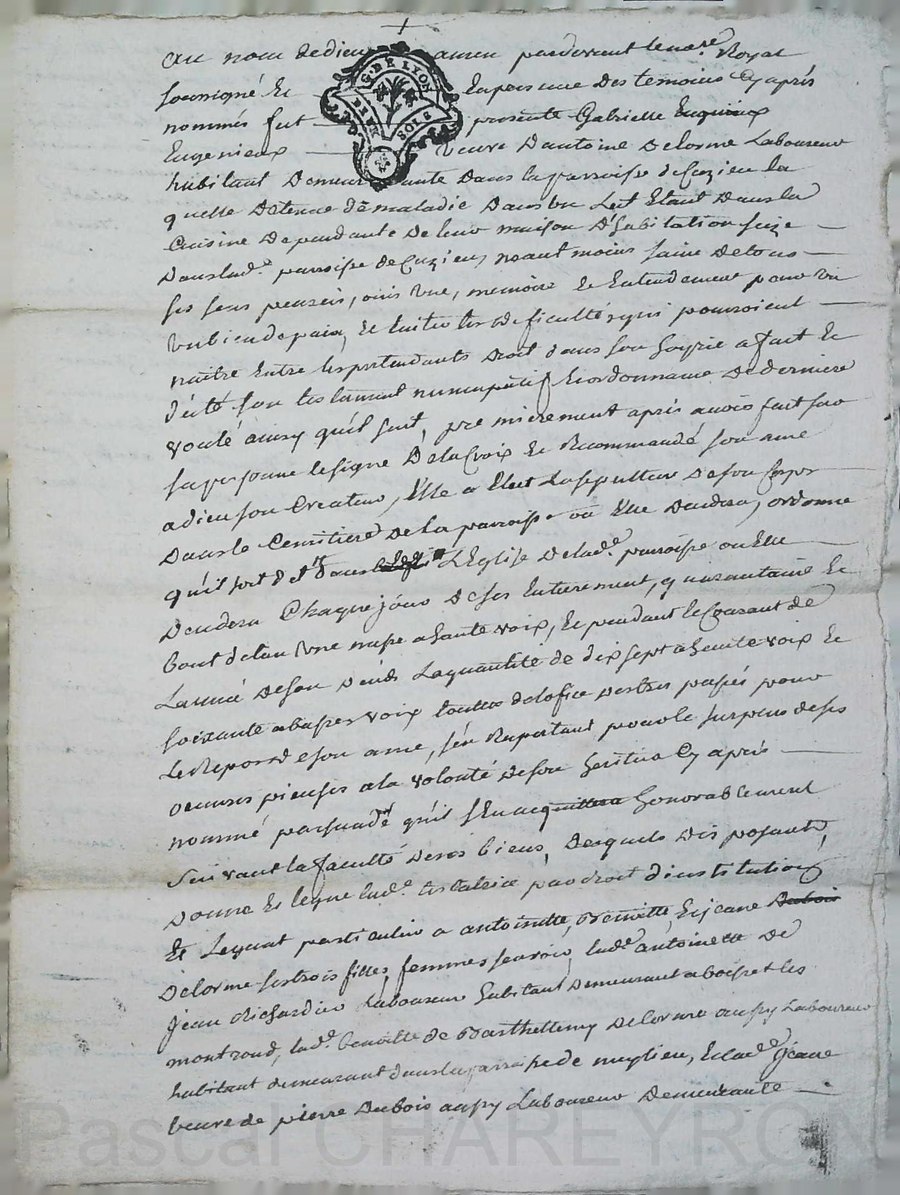 au nom de dieu amen pardevant le no.re Royal
soussigné et GNE LYON En presence des temoins Cy après
nommés fut SOLS presente Gabrielle Eugenieux
Eugenieux veuve D'antoine Delorme Laboureur
habitant Demeurante Dans la parroisse de Cuzieu la
quelle Detenue de maladie Dans un Lit Etant Dans la
Cuisine Dependante De leur maison D'habitation size
Dans lad.e parroisse de Cuzieu, neantmoins saine De tous
ses sens pensées, ouis vue, memoire Et Entendement pour un
bien de paix, Et Eviter les Dificultés qui pouroient
naitre Entre les pretendants Droit dans son hoyrie a fait Et
son testament nuncupatif Et ordonnance De derniere
volonté ainsy qu'il suit, premierement après avoir fait sur
sa personne le signe De la Croix Et Recommandé son ame
a dieu son Createur, Elle a Elect la sepulture De son Corps
Dans le Cemitiere De la parroisse où Elle Decedera, ordonne
qu'il soit dit Dans L'Eglise De lad.e parroisse ou Elle
Decedera Chaque jour De ses Enterrement, quarantaine Et
bout de l'an une messe a haute voix, Et pendant le Courant de
L'année De son Décès La quantité de dix sept a haute voix Et
soixante a basses voix toutes de l'ofice des trepassés pour
Le Repos de son ame, s'en Raportant pour le surplus de ses
oeuvres pieuses a la volonté De son heritier Cy après
nommé persuadée qu'il s'En acquittera honorablement
suivant la faculté De ses biens, Desquels Disposante,
Donne Et legue lad.e testatrice par droit d'institution
Et Legat particulier a antoinette, Benoitte, Et jeane Dubois
Delorme ses trois filles, femmes sçavoir, lad.e antoinette De
Jean Richardier Laboureur habitant Demeurant a boisset les
montrond, lad.e benoitte de Barthelemy Delorme aussy Laboureur
habitant demeurant dans la parroisse de meylieu, Et lad.e Jeane
veuve de pierre Dubois aussy Laboureur Demeurante
Pascal CHAREYRON